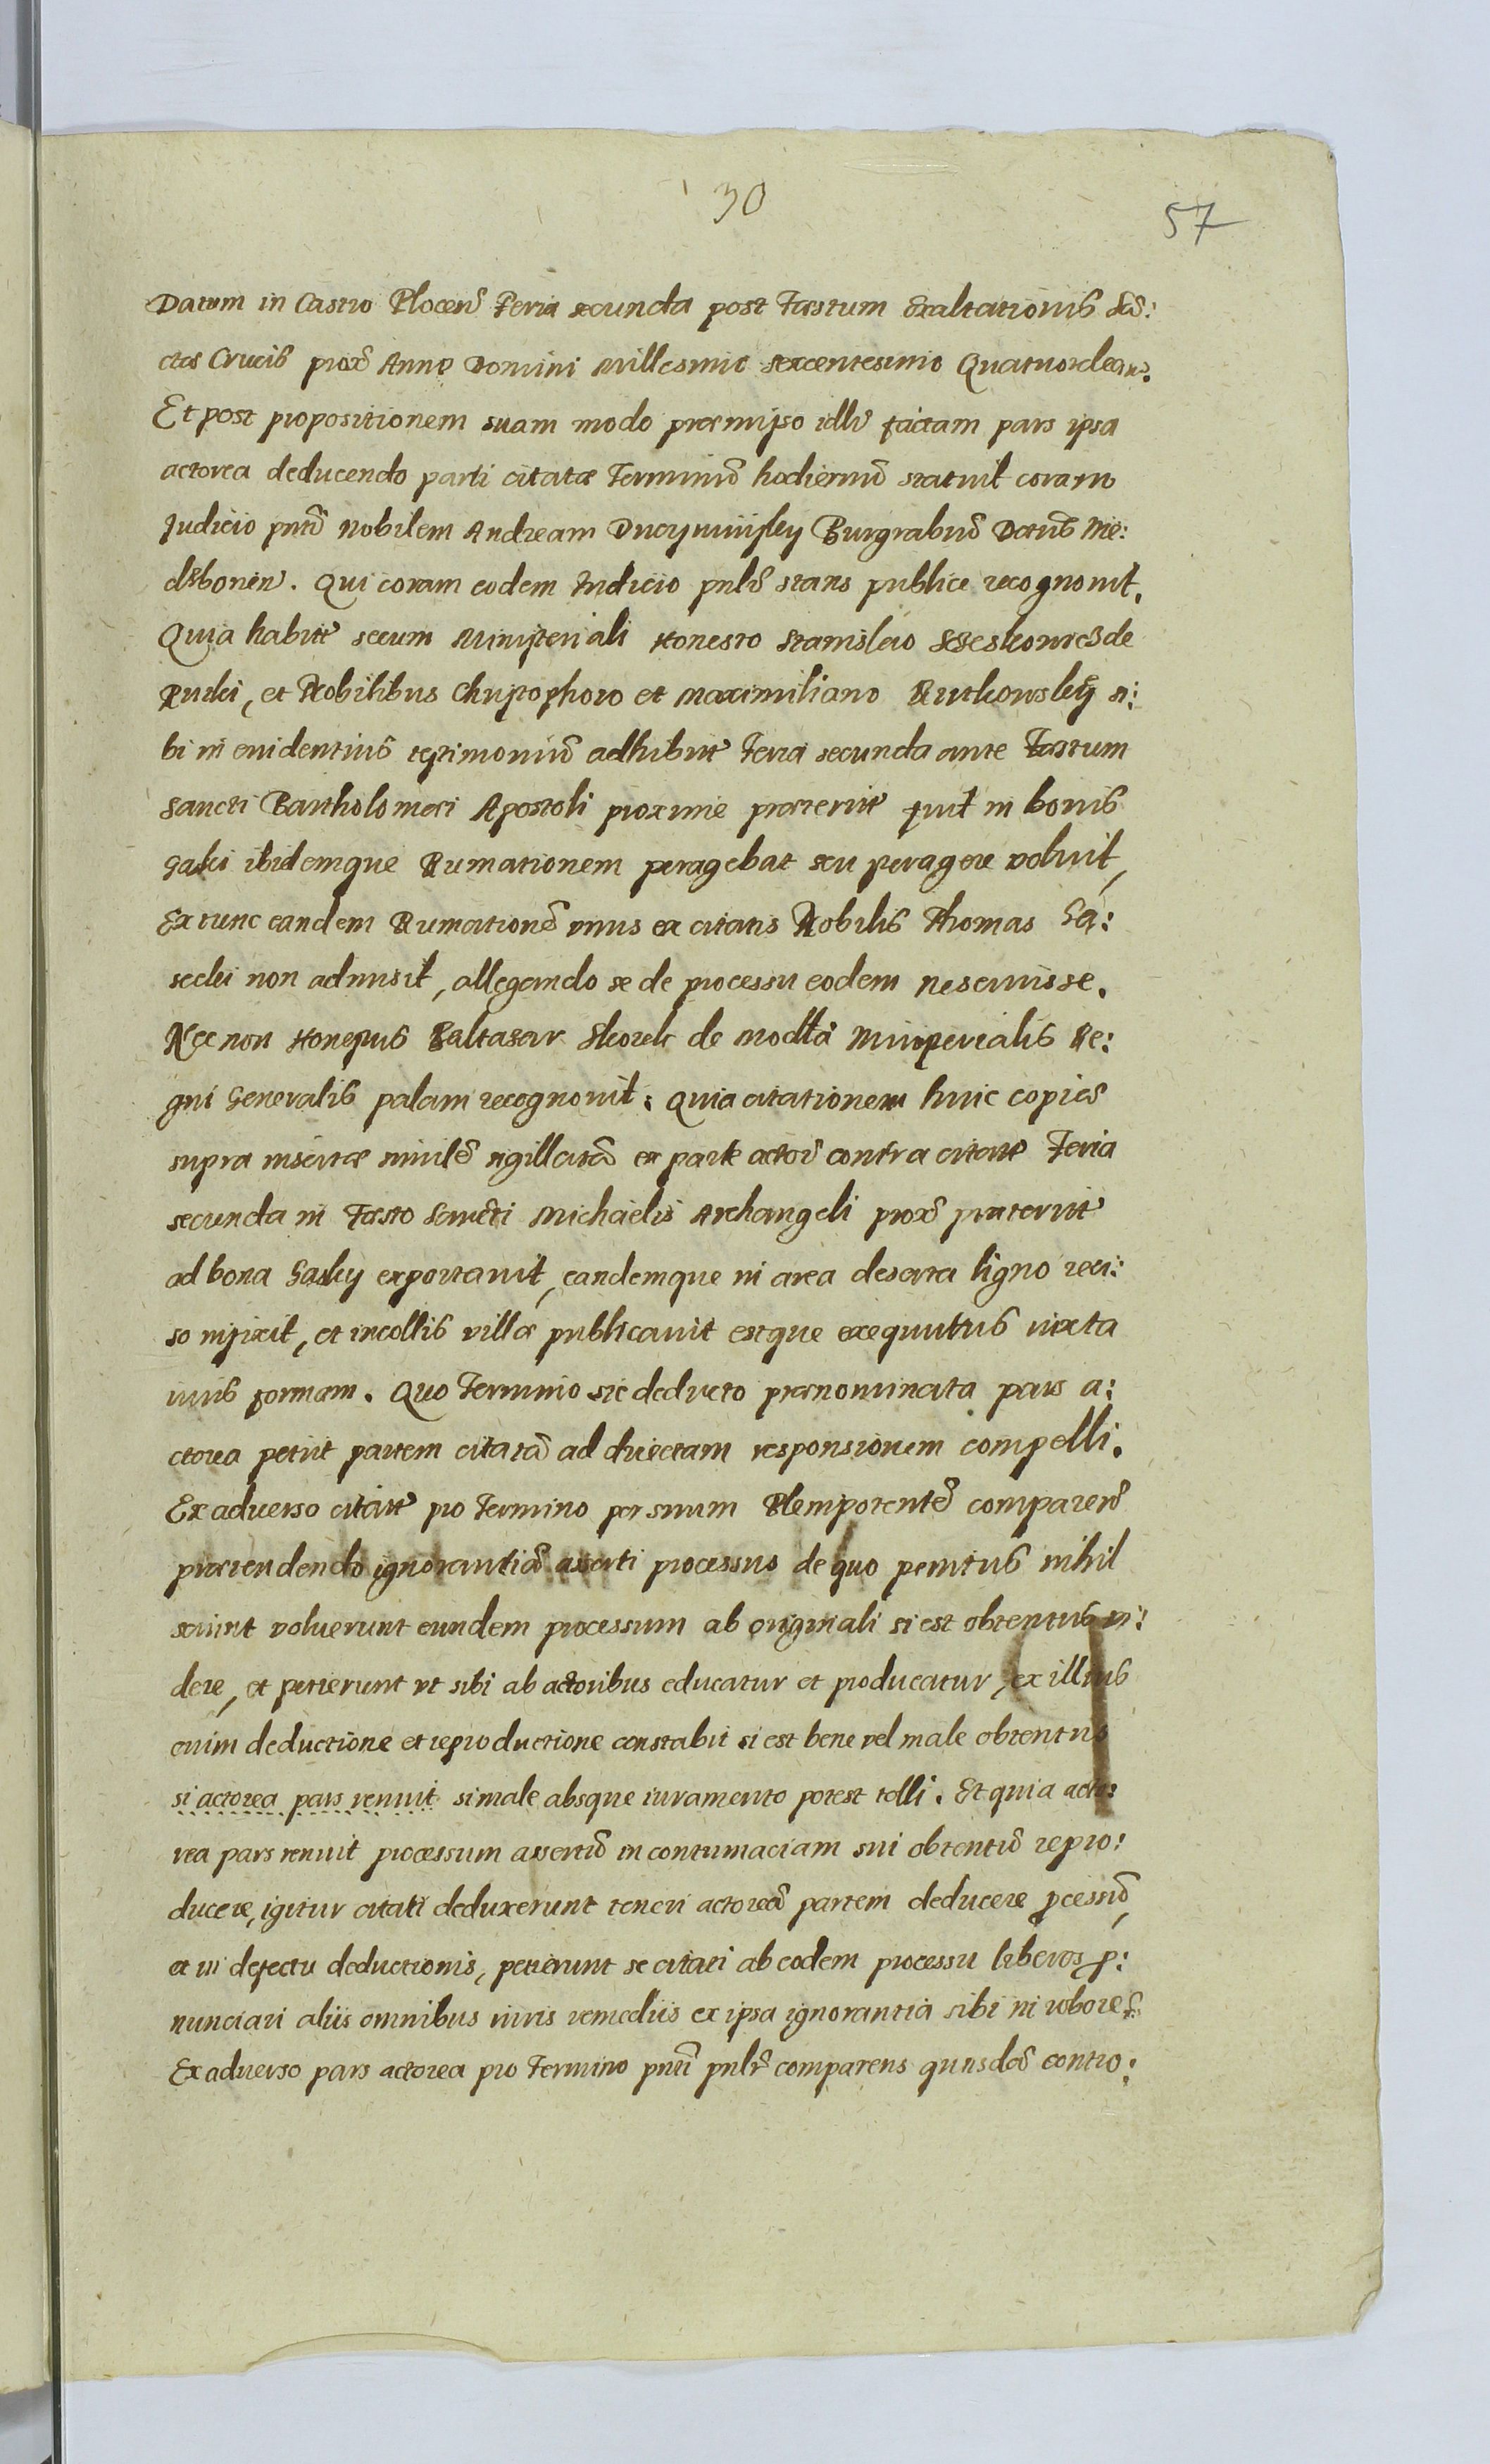 30
57
Datum in Castro Plocen̄ Feria secunda post Fæstum Exaltationis Sā:
ctæ Crucis prox̄ Anno Domini Millesimo sexcentesimo Quatuordecimo.
Et post propositionem suam modo præmisso illic̄ factam pars ipsa
actorea deducendo parti citatæ Terminū hodiernū statuit coram
Judicio pntī Nobilem Andream Burgrabiū
. Qui coram eodem Judicio pnlr̄ stans publice recognovit.
Quia habita secum Ministeriali Honesto Stanislao de
Rutki, et Nobilibus Christophoro et Maximiliano Rutkowskÿ si:
bi in euidentius testimoniū adhibitis Feria secunda ante Fæstum
Sancti Bartholomæi Apostoli proxime præterita fuit in bonis
Gaski ibidemque Rumationem peragebat seu peragere voluit,
Extunc eandem Rumationē vnus ex citatis Nobilis Thomas Ga:
secki non admisit, allegando se de processu eodem nescivisse.
Nec non Honestus Baltasar Skorek de Modła Ministerialis Re:
gni Generalis palam recognovit: Quia citationem huic copiæ
supra insertæ similē sigillatā ex parte actorū contra citatos Feria
secunda in Fæsto Sancti Michaelis Archangeli prox̄ præterita
ad bona Gasky exportavit, eandemque in area deserta ligno reci:
so infixit, et incollis villæ publicavit estque exequutus iuxta
iuris formam. Quo Termino sic deducto prænominata pars a:
ctorea petiit partem citatā ad directam responsionem compelli.
Ex adverso citati pro Termino per suum Plenipotentē comparen̄
prætendendo ignorantiā asserti processus de quo penitus nihil
sciunt voluerunt eundem processum ab originali si est obtentus vi:
dere, et petierunt vt sibi ab actoribus educatur et producatur, ex illius
enim deductione et reproductione constabit si est bene vel male obtentus
si actorea pars renuit si male absque iuramento potest tolli. Et quia acto:
rea pars renuit processum assertū in contumaciam sui obtentū repro:
ducere, igitur citati deduxerunt teneri actoreā partem deducere p̱cessū,
et in defectu deductionis, petierunt se citati ab eodem processu liberos p̱:
nunciari aliis omnibus iuris remediis ex ipsa ignorantia sibi in robore s:
Ex adverso pars actorea pro Termino pntī pnlr̄ comparens quasdā contro: